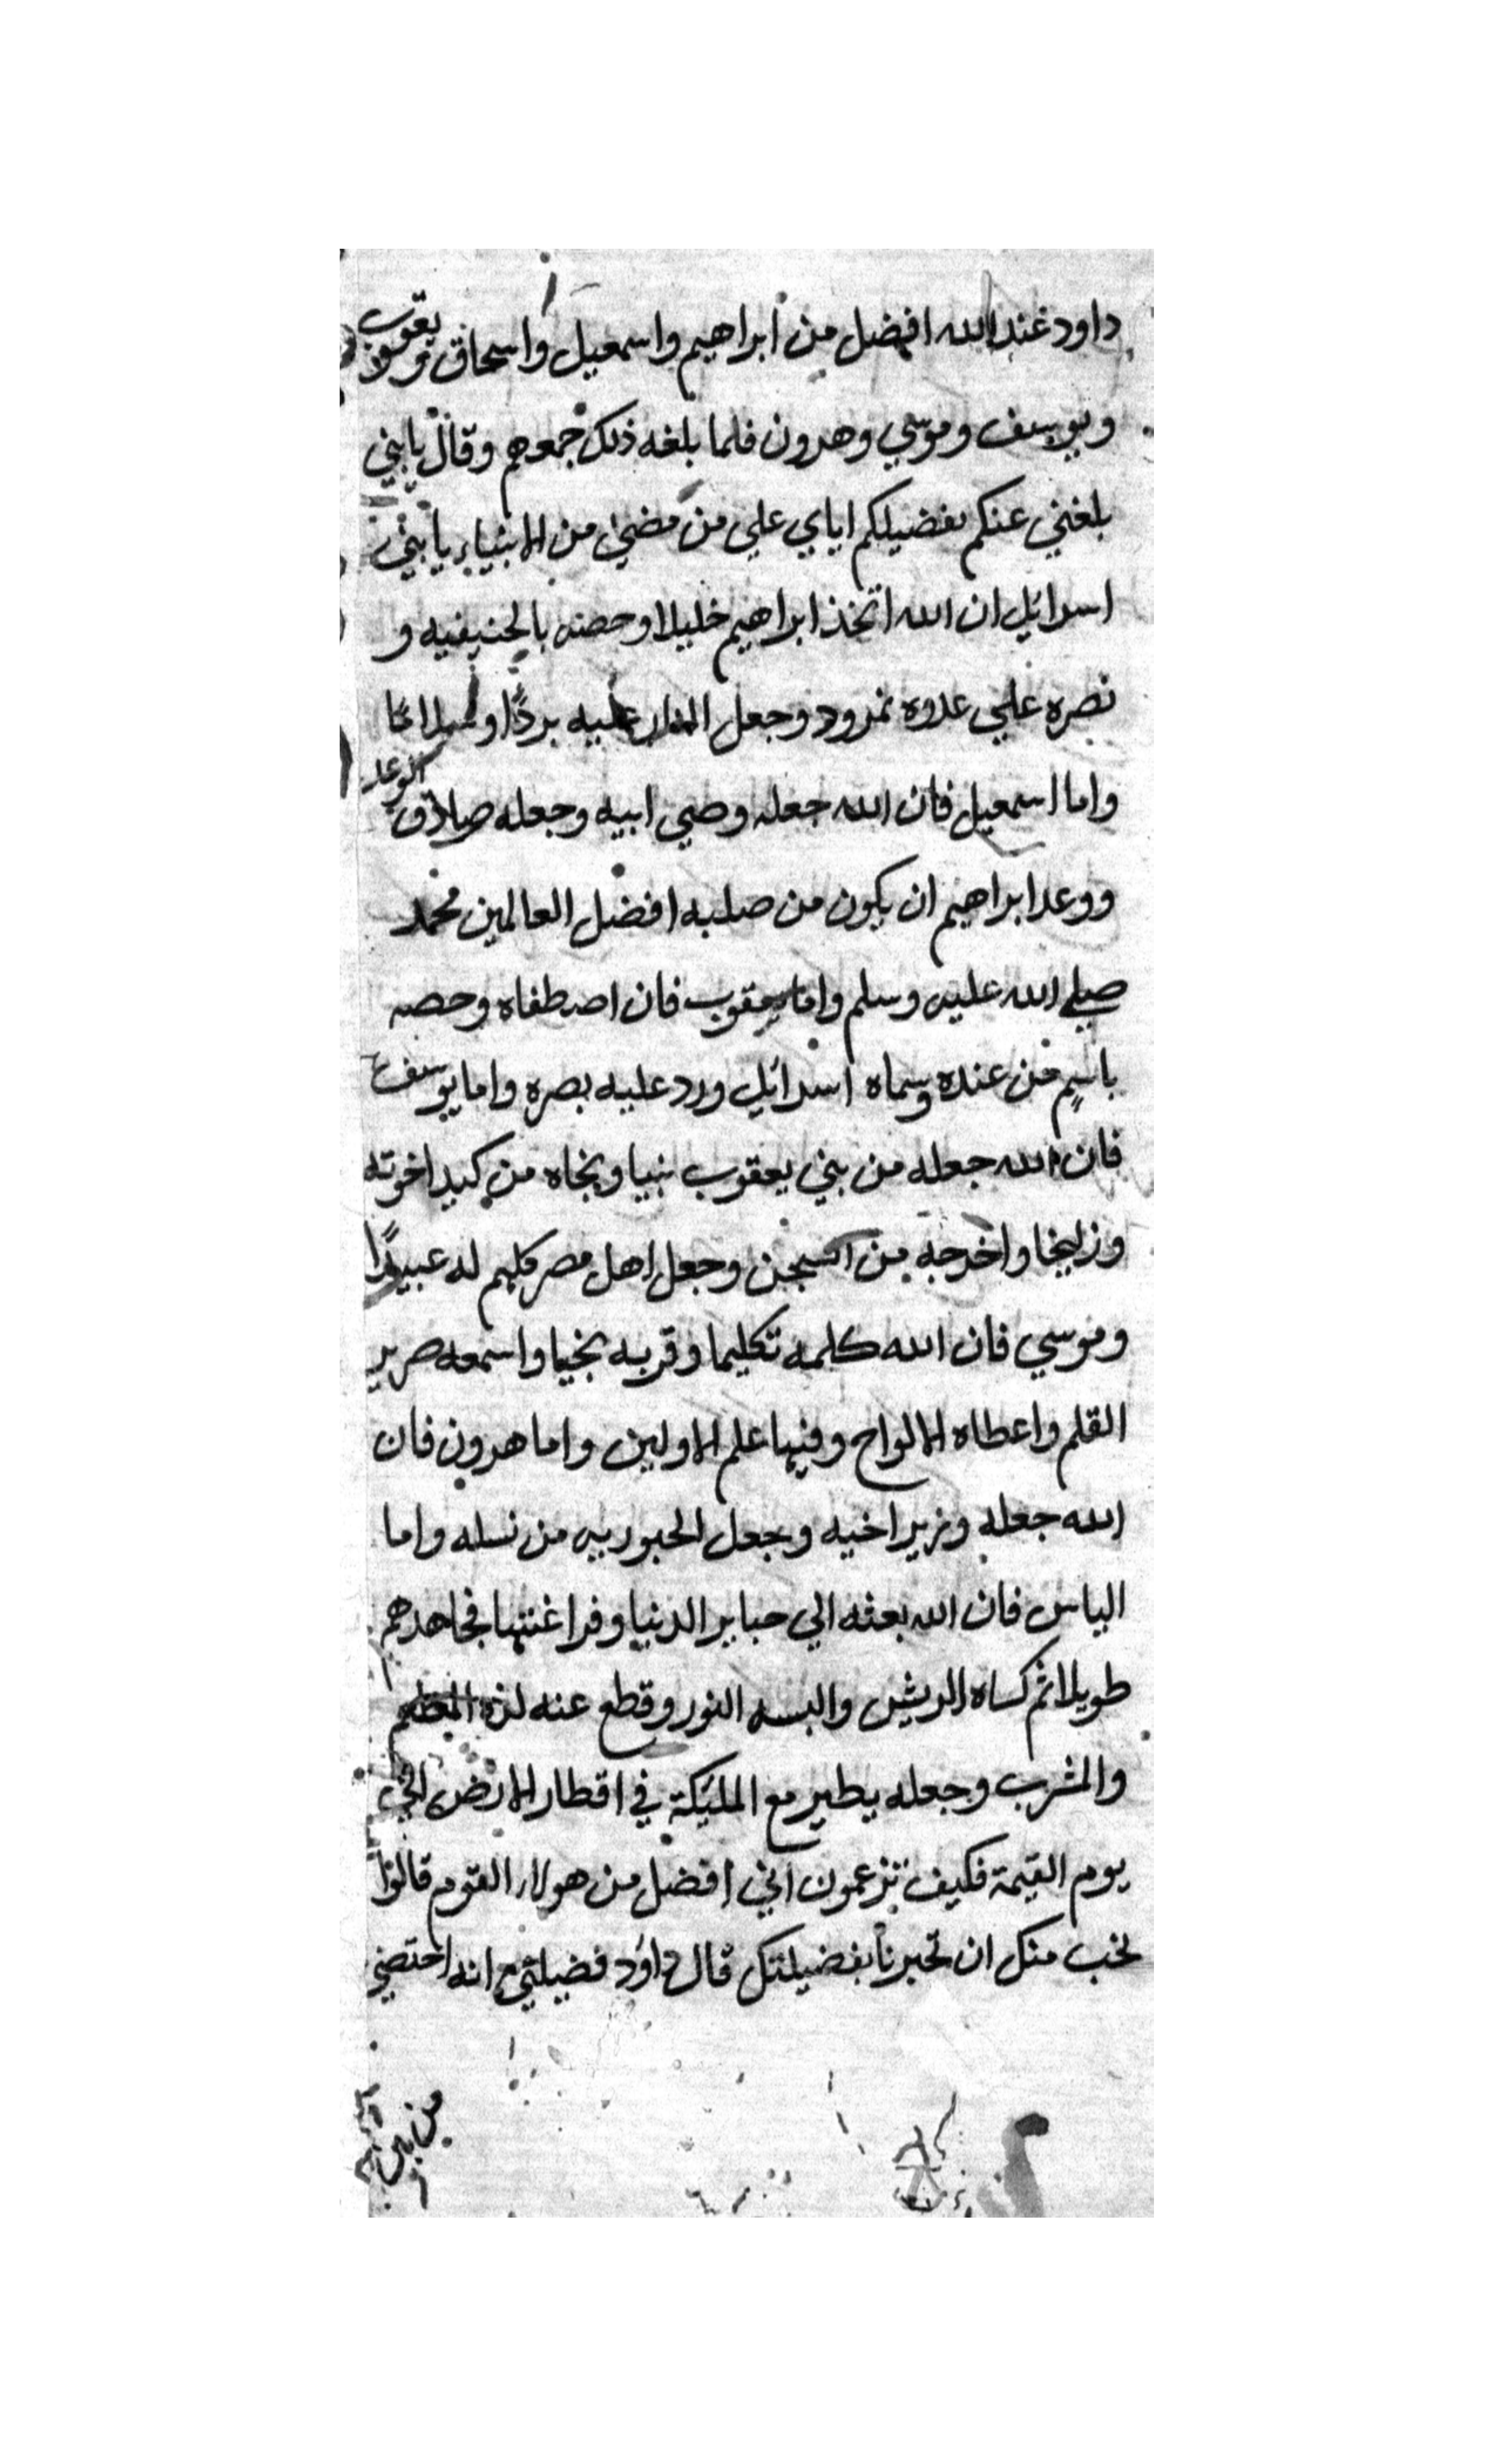 داود عند الله افضل من ابراهيم واسمعيل واسحاق ويعقوب
ويوسف وموسي وهرون فلما بلغه ذلك جمعهم وقال يا بني
بلغني عنكم تفضيلكم اياي علي من مضي من الانبياء يا بني
اسرائيل ان الله اتخذ ابراهيم خليلا وخصه بالحنيفيه و
نصره علي عدوه نمرود وجعل النار عليه بردًا وسلامًا
واما اسمعيل فان الله جعله وصي ابيه وجعله صادق الوعد
ووعد ابراهيم ان يكون من صلبه افضل العالمين محمد
صلي الله عليه وسلم واما يعقوب فان اصطفاه وخصه
باسمٍ من عنده وسماه اسرائيل ورد عليه بصره واما يوسف
فان الله جعله من بني يعقوب نبيا ونجاه من كيد اخوته
وزليخا واخرجه من السجن وجعل اهل مصر كلهم له عبيدًا
وموسي فان الله كلمه تكليما وقربه نجيا واسمعه صرير
القلم واعطاه الالواح وفيها علم الاولين واما هرون فان
الله جعله وزير اخيه وجعل الحبوريه من نسله واما
الياس فان الله بعثه الي جبابر الدنيا وفراعنتها فجاهدهم
طويلا ثم كساه الريش والبسه النور وقطع عنه لذة المطعم
والمشرب وجعله يطير مع المليكة في اقطار الارض الي
يوم القيمة فكيف تزعمون اني افضل من هولاء القوم قالوا
نحب منك ان تخبرنا بفضيلتك قال داود فضيلتي انه اختصني
من بين